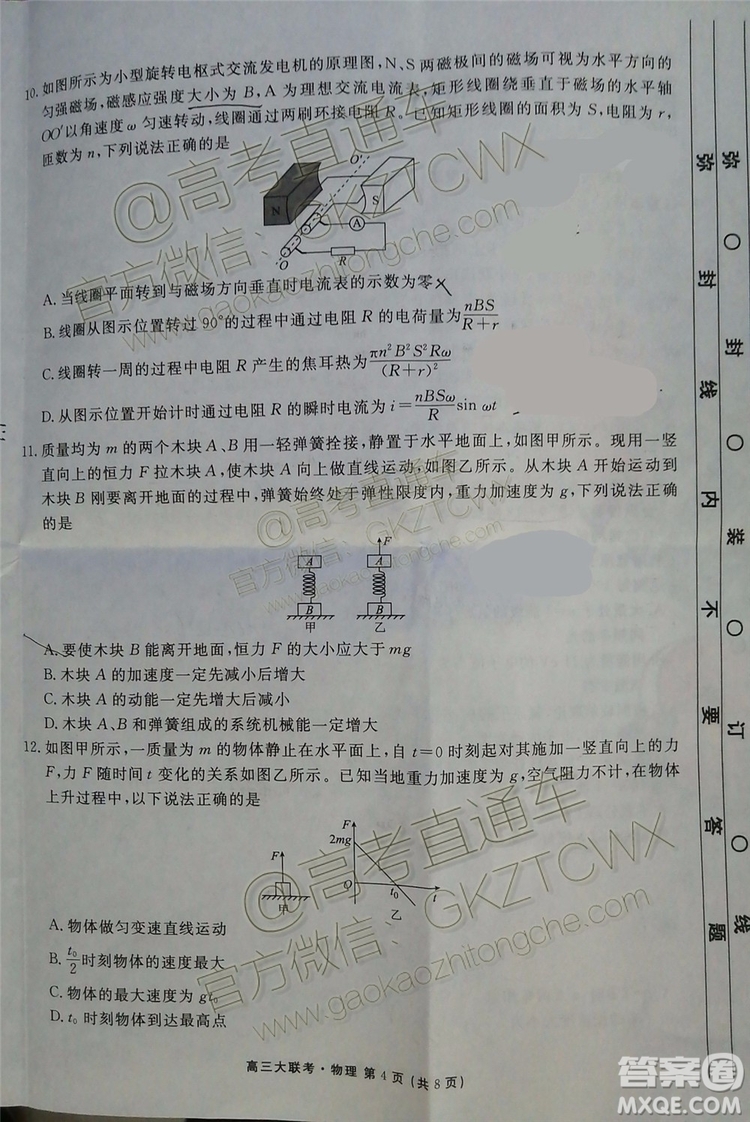 10. 如图所示为小型旋转电枢式交流发电机的原理图,N、S 两磁极间的磁场可视为水平方向的
匀强磁场,磁感应强度大小为 B,A 为理想交流电流表,矩形线圈绕垂直于磁场的水平轴
OO′以角速度 ω 匀速转动,线圈通过两刷环接电阻 R。已知矩形线圈的面积为 S,电阻为 r,
匝数为 n,下列说法正确的是
O′
N
S
A
O
R
A. 当线圈平面转到与磁场方向垂直时电流表的示数为零
B. 线圈从图示位置转过 90°的过程中通过电阻 R 的电荷量为 nBS/(R+r)
C. 线圈转一周的过程中电阻 R 产生的焦耳热为 πn²B²S²Rω/(R+r)²
D. 从图示位置开始计时通过电阻 R 的瞬时电流为 i= nBSω/R sin ωt
11. 质量均为 m 的两个木块 A、B 用一轻弹簧拴接,静置于水平地面上,如图甲所示。现用一竖
直向上的恒力 F 拉木块 A,使木块 A 向上做直线运动,如图乙所示。从木块 A 开始运动到
木块 B 刚要离开地面的过程中,弹簧始终处于弹性限度内,重力加速度为 g,下列说法正确
的是
F
A
A
B
B
甲
乙
A. 要使木块 B 能离开地面,恒力 F 的大小应大于 mg
B. 木块 A 的加速度一定先减小后增大
C. 木块 A 的动能一定先增大后减小
D. 木块 A、B 和弹簧组成的系统机械能一定增大
12. 如图甲所示,一质量为 m 的物体静止在水平面上,自 t=0 时刻起对其施加一竖直向上的力
F,力 F 随时间 t 变化的关系如图乙所示。已知当地重力加速度为 g,空气阻力不计,在物体
上升过程中,以下说法正确的是
F
2mg
F
O
t₀
t
甲
乙
A. 物体做匀变速直线运动
B. t₀/2 时刻物体的速度最大
C. 物体的最大速度为 gt₀
D. t₀ 时刻物体到达最高点
高三大联考·物理 第 4 页(共 8 页)
弥 封 线 内 不 要 答 题
弥 ○ 封 ○ 装 ○ 订 ○ 线
@高考直通车
官方微信：GKZTCWX
www.gaokaozhitongche.com
@高考直通车
官方微信：GKZTCWX
www.gaokaozhitongche.com
@高考直通车
官方微信：GKZTCWX
www.gaokaozhitongche.com
答案圈
MXQE.COM